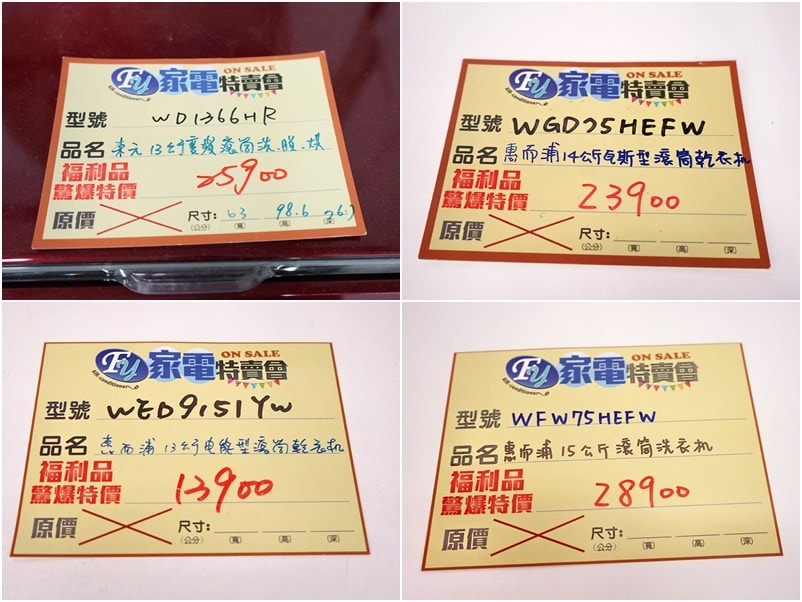 Fy 家電特賣會 ON SALE
air-conditioner
型號 WD1366HR
品名 東元13公斤變頻滾筒洗.脫.烘
福利品
驚爆特價 25900
原價 尺寸: 63 98.6
(公分) (寬) (高) (深)
Fy 家電特賣會 ON SALE
air-conditioner
型號 WGD75HEFW
品名 惠而浦14公斤瓦斯型滾筒乾衣机
福利品
驚爆特價 23900
原價 尺寸:
(公分) (寬) (高) (深)
Fy 家電特賣會 ON SALE
air-conditioner
型號 WED9151YW
品名 惠而浦13公斤电能型滾筒乾衣机
福利品
驚爆特價 13900
原價 尺寸:
(公分) (寬) (高) (深)
Fy 家電特賣會 ON SALE
air-conditioner
型號 WFW75HEFW
品名 惠而浦15公斤滾筒洗衣机
福利品
驚爆特價 28900
原價 尺寸:
(公分) (寬) (高) (深)